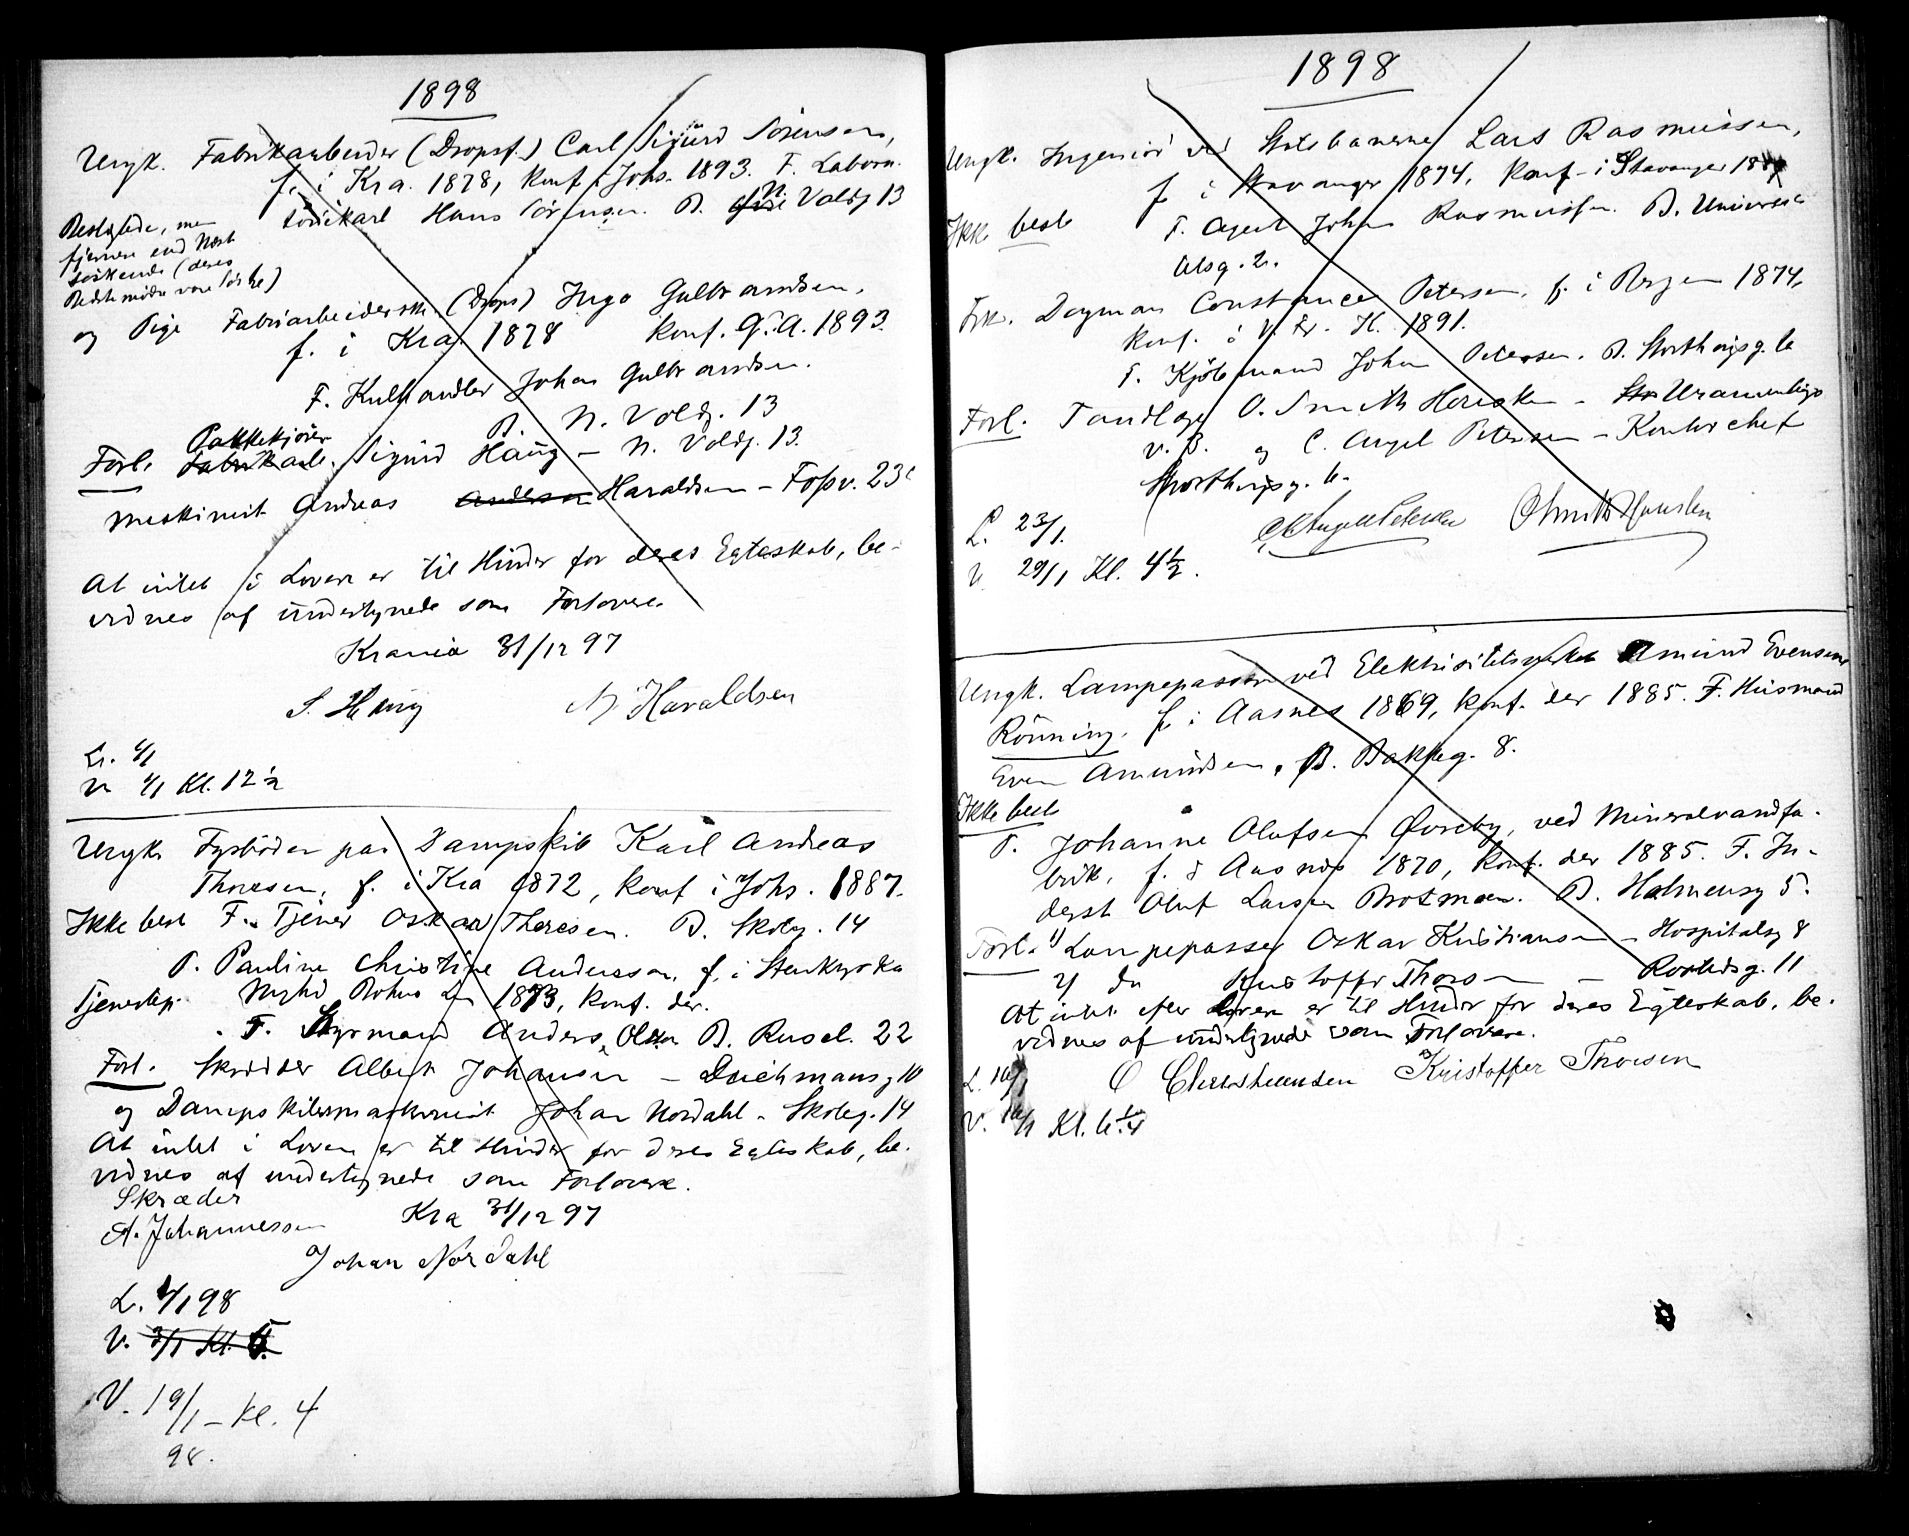 1898
Ungk. Fabrikarbeider (Dropsf.) Carl Sigurd Sörensen,
f. i Kra. 1878, konf. i Johs. 1893. F. Labora-
toriekarl Hans Sörensen. B. N. Voldg 13
Beslægtede, men
fjernere end Næst-
söskende (deres
Bedstemödre vare Söstre)
og Pige Fabriarbeiderske (Drops) Inga Gulbrandsen,
f. i Kra. 1878 konf. G.A. 1893.
F. Kulhandler Johan Gulbrandsen.
B. N. Voldg. 13
Pakkekjörer
Forl. Sigurd Haug – N. Voldg. 13.
Maskinist Andreas Andersen Haraldsen – Fossv. 23c
At intet i Loven er til Hinder for deres Egteskab, be-
vidnes af undertegnede som Forlovere.
Krania 31/12 97
S. Haug A. Haraldsen
L. 6/1
V. 6/1 Kl. 12 1/2
Ungk. Fyrböder paa Dampskib Karl Andreas
Thoresen, f. i Kra 1872, konf i Johs. 1887.
Ikke besl F. Tjener Oskar Thoresen. B. Skoleg. 14
P. Pauline Christine Andersson, f. i Stenkyrka
Tjenestep. Bohus Len 1873, konf. der.
F. Styrmand Anders Olsson B. Rusel. 22
Forl. Skrædder Albert Johansen – Deichmansg 10
og Dampskibsmaskinist Johan Nordahl – Skoleg. 14
At intet i Loven er til Hinder for deres Egteskab, be-
vidnes af undertegnede som Forlovere.
Skræder
A. Johannessen Kra 31/12 97
Johan Nordahl
L. 4/1 98
V. 3/1 Kl. 5.
V. 19/1 – kl. 4
98.
1898
Ungk. Ingeniör ved Statsbanerne Lars Rasmussen,
f i Stavanger 1874, konf. i Stavanger
Ikke besl F. Agent Johan Rasmussen. B. Universi-
tetsg. 2.
Frk. Dagmar Constance Petersen, f. i Bergen 1874,
konf. i V. Fr. K. 1891.
F. Kjöbmand Johan Petersen. B. Storthingsg. 6
Forl. Tandlæge O. Smith Housken – Uranienborg
v. 3. og C. Angel Petersen – Kontorchef
Storthingsg. 6.
L. 23/1. C Angell Petersen O Smith Housken
V. 29/1 Kl. 4 1/2.
Ungk. Lampepasser ved Elektrisitetsverket Amund Evensen
Rönning, f. i Aasnes 1869, konf. der 1885. F. Husmand
Even Amundsen, B. Bakkeg. 8.
Ikke besl
P. Johanne Olufsen Øvreby, ved Mineralvandfa-
brik, f. i Aasnes 1870, konf. der 1885. F. In-
derst Oluf Larsen Brotmoen. B. Holmensg 5.
Forl. 1) Lampepasser Oskar Kristiansen – Hospitalsg 8
2) do Kristoffer Thorsen – Rostedsg. 11
At intet efter Loven er til Hinder for deres Egteskab, be-
vidnes af undertegnede som Forlovere.
L. 16/1 O Christensen Kristoffer Thorsen
V. 16/1 Kl. 6 1/4